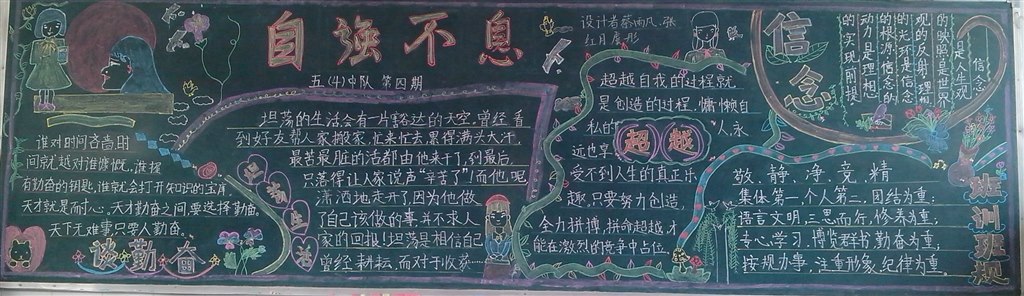 自强不息
五(4)中队 第四期
设计者蔡雨凡、张
红月
谁对时间吝啬,时
间就越对谁慷慨。谁被
有勤奋的钥匙,谁就会打开知识的宝库
天才就是耐心。天才勤奋之间,要选择勤奋。
天下无难事,只要人勤奋。
谈勤奋
坦荡生活
坦荡的生活会有一片豁达的天空,曾经看
到好友帮人家搬家,忙来忙去累得满头大汗,
最苦最脏的活都由他来干了,到最后
只落得让人家说声“辛苦了”!而他呢
潇洒地走开了,因为他做
了自己该做的事,并不求人
家的回报!坦荡是相信自己
曾经耕耘,而对于收获
超越自我的过程就
是创造的过程,慵懒自
私的人,永
远也享
超越
受不到人生的真正乐
趣,只要努力创造,
全力拼搏,拼命超越,才
能在激烈的竞争中占位
信念
信念
是人生观
的映照,是世界
观的反射,理想
的光环是信念
的根源,信念的
动力是理想
的实现前提
敬、静、净、竞、精
集体第一,个人第二,团结为重;
语言文明,三思而行,修养为重;
专心学习,博览群书,勤奋为重;
按规办事,注重形象,纪律为重。
班训班规